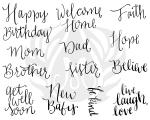 Happy
Birthday
Welcome
Home
Faith
Mom
Dad
Hope
Brother
Sister
Believe
get
well
soon
New
Baby
be kind
live
laugh
love